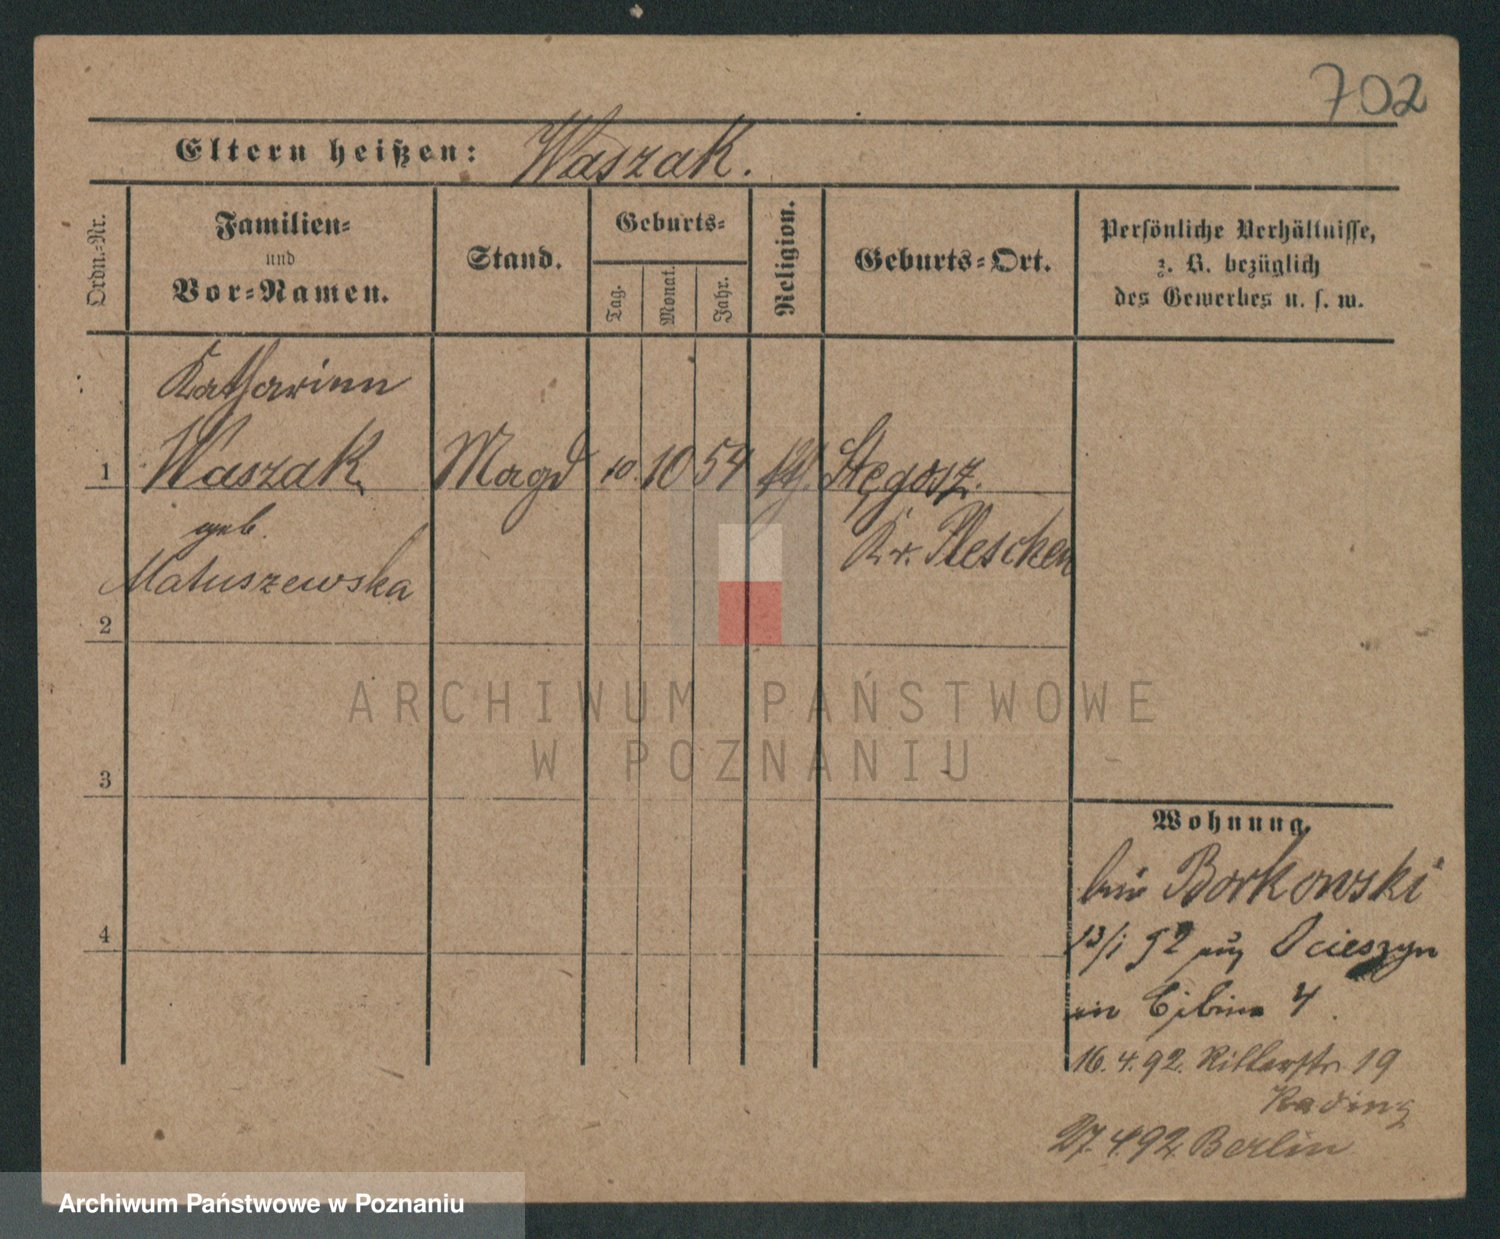 702
Eltern heißen: Waszak.
Ordn.-Nr.
Familien-
und
Vor-Namen.
Stand.
Geburts-
Tag.
Monat.
Jahr.
Religion.
Geburts-Ort.
Persönliche Verhältnisse,
z. B. bezüglich
des Gewerbes u. s. w.
Katharina
1 Waszak Magd 10. 10 54 Stęgosz.
geb. Kr. Pleschen
Matuszewska
2
ARCHIWUM PAŃSTWOWE
W POZNANIU
3
Wohnung.
bei Borkowski
13/1 92 Ocieszyn
4
16. 4. 92. Ritterstr. 19
27. 4. 92. Berlin
Archiwum Państwowe w Poznaniu